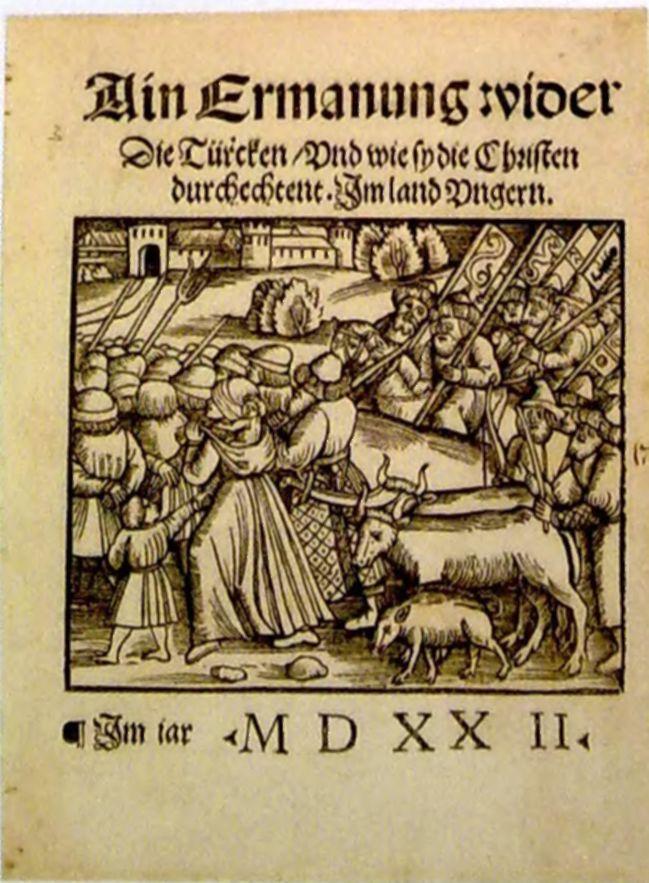 Ain Ermanung wider
Die Türcken / Vnd wie sy die Christen
durchechtent. Im land Vngern.
¶ Im iar M D XX II